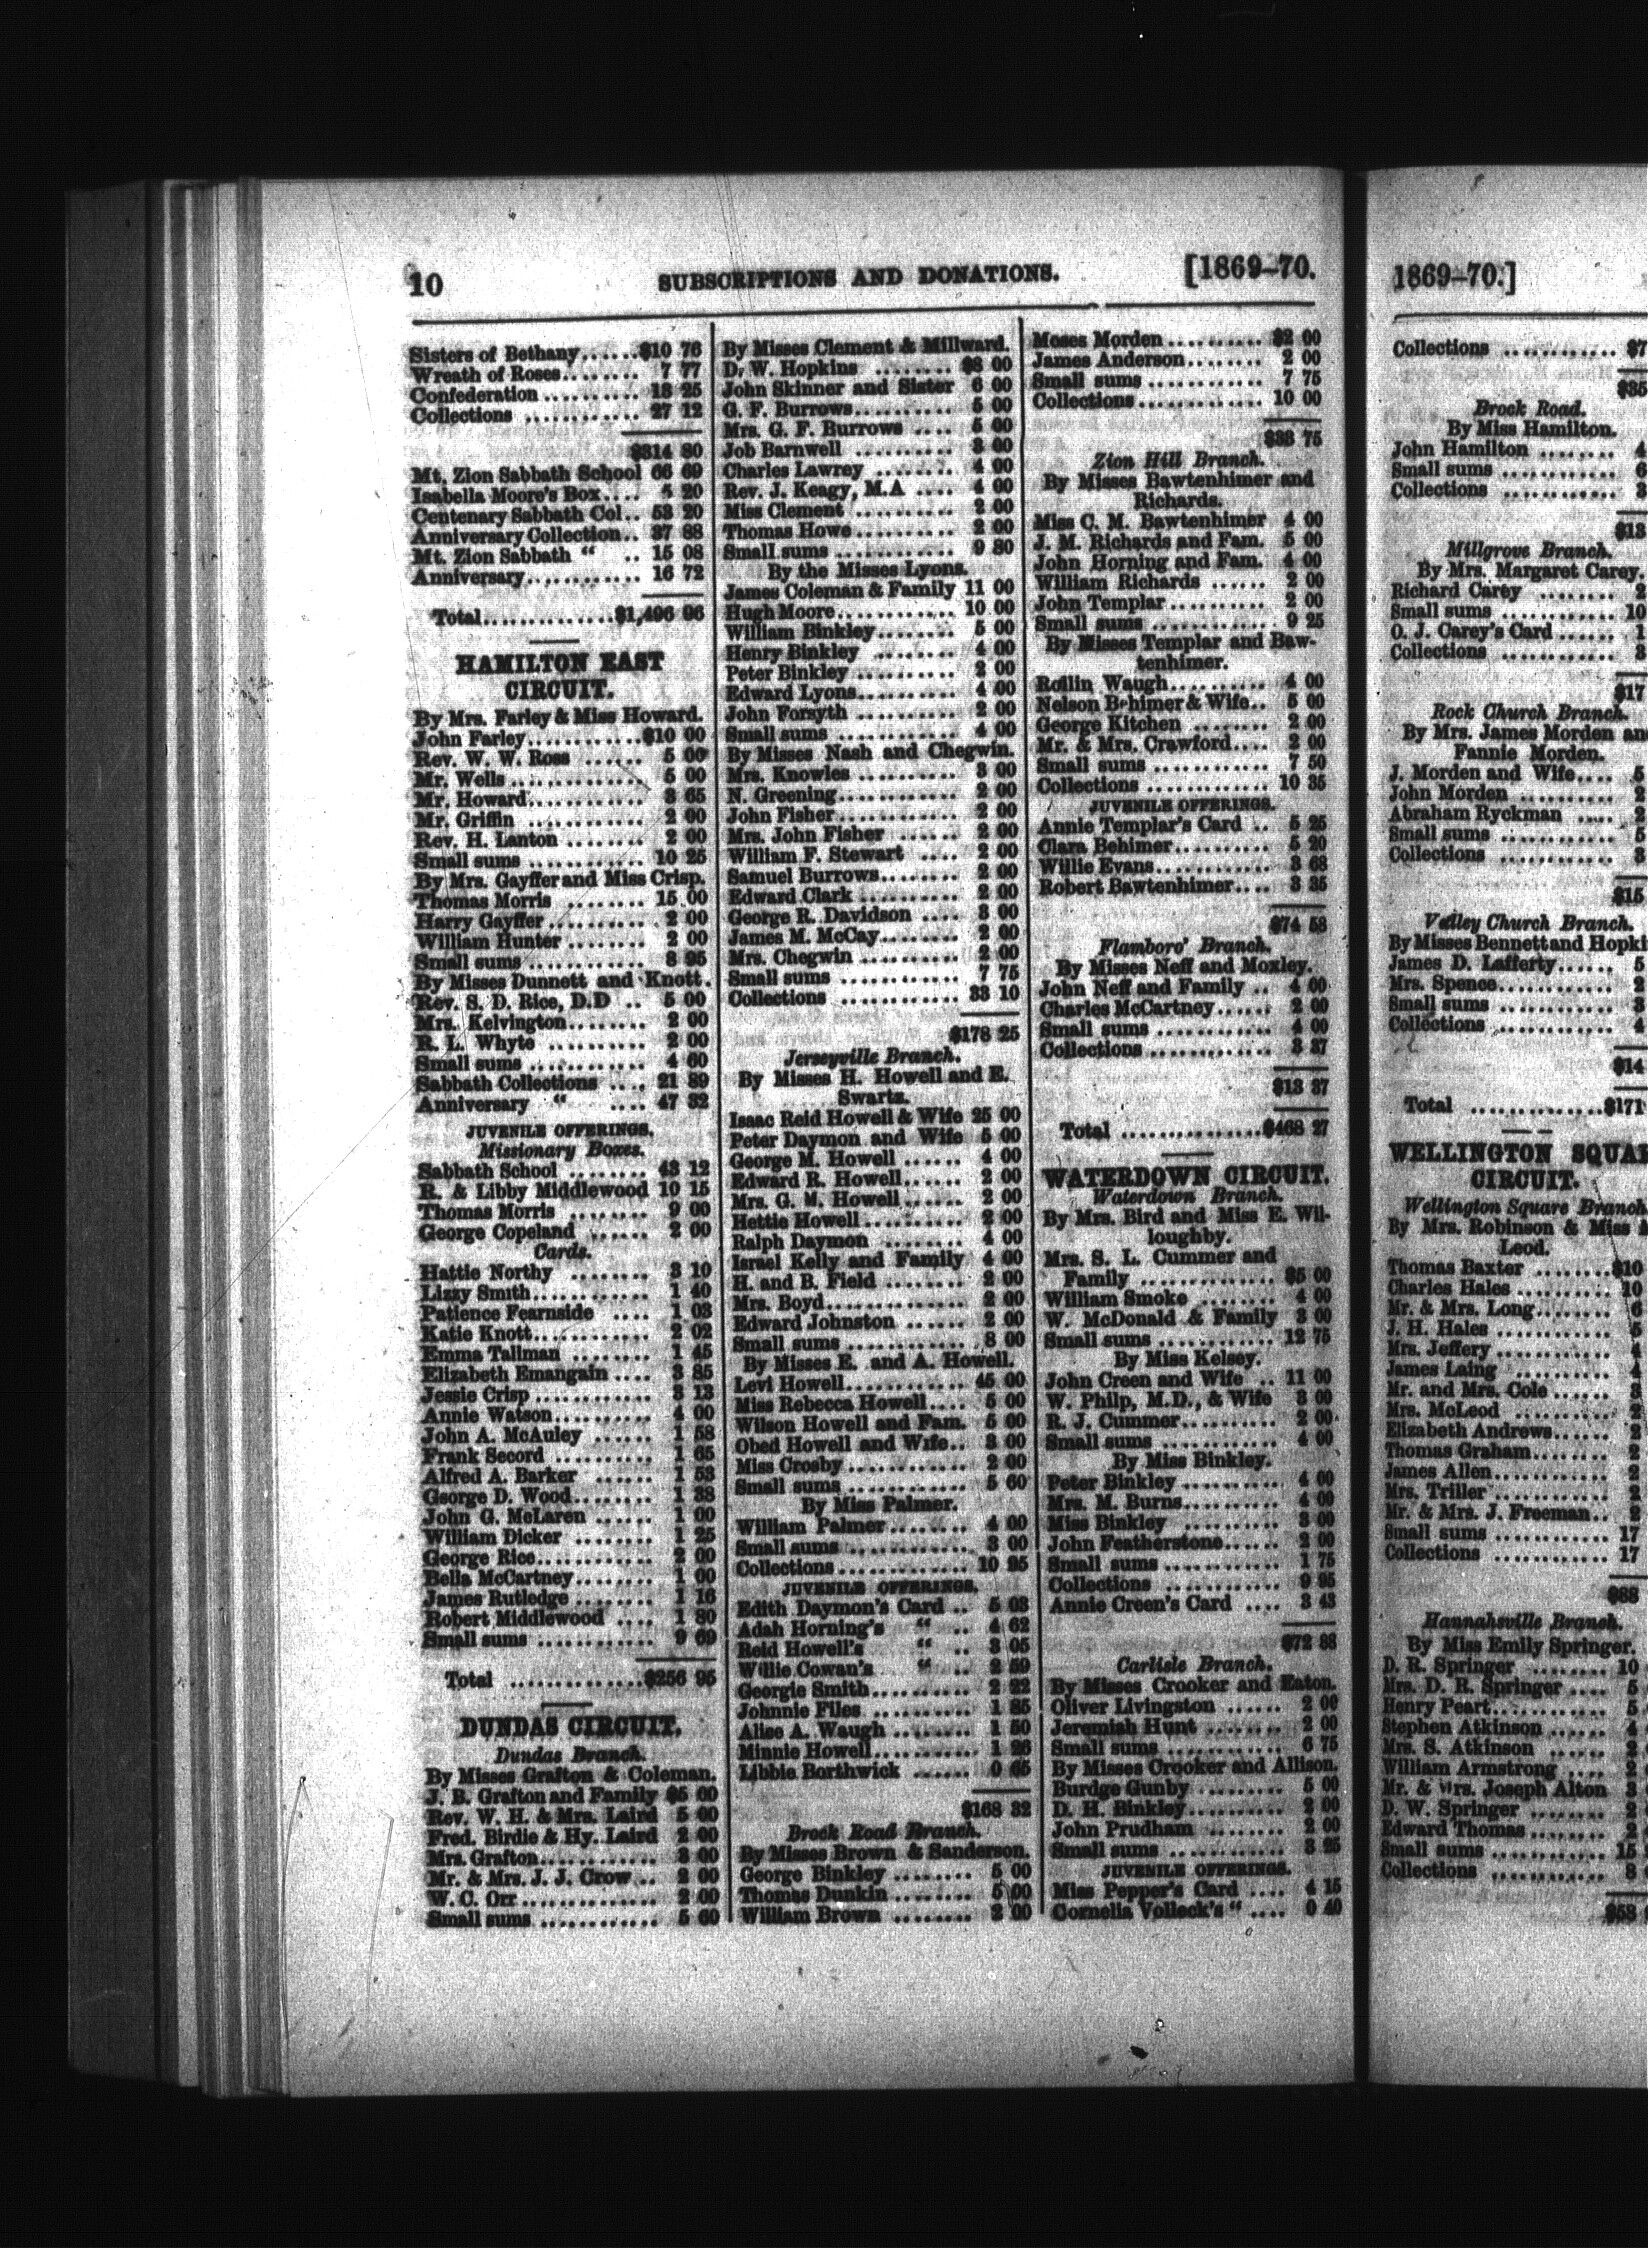 10
SUBSCRIPTIONS AND DONATIONS.
[1869–70.
Sisters of Bethany......$10 76
Wreath of Roses........ 7 77
Confederation.......... 18 25
Collections .......... 27 12
$314 80
Mt. Zion Sabbath School 66 69
Isabella Moore's Box.... 5 20
Centenary Sabbath Col.. 53 20
Anniversary Collection.. 37 88
Mt. Zion Sabbath " .. 15 08
Anniversary............ 16 72
Total..............$1,496 96
HAMILTON EAST
CIRCUIT.
By Mrs. Farley & Miss Howard.
John Farley............$10 00
Rev. W. W. Ross ...... 5 00
Mr. Wells ............ 5 00
Mr. Howard............ 3 65
Mr. Griffin ............ 2 00
Rev. H. Lanton ........ 2 00
Small sums ............ 10 25
By Mrs. Gayffer and Miss Crisp.
Thomas Morris ........ 15 00
Harry Gayffer .......... 2 00
William Hunter ........ 2 00
Small sums ............ 8 95
By Misses Dunnett and Knott.
Rev. S. D. Rice, D.D .. 5 00
Mrs. Kelvington........ 2 00
R. L. Whyte .......... 2 00
Small sums ............ 4 60
Sabbath Collections .... 21 89
Anniversary " .... 47 32
JUVENILE OFFERINGS.
Missionary Boxes.
Sabbath School ........ 43 12
R. & Libby Middlewood 10 15
Thomas Morris ........ 9 00
George Copeland ...... 2 00
Cards.
Hattie Northy ........ 3 10
Lizzy Smith............ 1 40
Patience Fearnside .... 1 03
Katie Knott............ 2 02
Emma Tallman ........ 1 45
Elizabeth Emangain .... 3 85
Jessie Crisp............ 3 13
Annie Watson.......... 4 00
John A. McAuley ...... 1 58
Frank Secord .......... 1 65
Alfred A. Barker ...... 1 53
George D. Wood........ 1 38
John G. McLaren ...... 1 00
William Dicker ........ 1 25
George Rice............ 2 00
Bella McCartney........ 1 00
James Rutledge ........ 1 16
Robert Middlewood .... 1 80
Small sums ............ 9 69
Total ..............$256 95
DUNDAS CIRCUIT.
Dundas Branch.
By Misses Grafton & Coleman.
J. B. Grafton and Family $5 00
Rev. W. H. & Mrs. Laird 5 00
Fred. Birdie & Hy. Laird 2 00
Mrs. Grafton............ 3 00
Mr. & Mrs. J. J. Crow.. 2 00
W. C. Orr.............. 2 00
Small sums ............ 5 60
By Misses Clement & Millward.
D. W. Hopkins ........ $8 00
John Skinner and Sister 6 00
G. F. Burrows.......... 5 00
Mrs. G. F. Burrows .... 5 00
Job Barnwell .......... 3 00
Charles Lawrey ........ 4 00
Rev. J. Keagy, M.A .... 4 00
Miss Clement .......... 2 00
Thomas Howe.......... 2 00
Small sums ............ 9 80
By the Misses Lyons.
James Coleman & Family 11 00
Hugh Moore............ 10 00
William Binkley........ 5 00
Henry Binkley ........ 4 00
Peter Binkley .......... 2 00
Edward Lyons.......... 4 00
John Forsyth .......... 2 00
Small sums ............ 4 00
By Misses Nash and Chegwin.
Mrs. Knowles .......... 3 00
N. Greening............ 2 00
John Fisher............ 2 00
Mrs. John Fisher ...... 2 00
William F. Stewart .... 2 00
Samuel Burrows........ 2 00
Edward Clark .......... 2 00
George R. Davidson .... 3 00
James M. McCay........ 2 00
Mrs. Chegwin .......... 2 00
Small sums ............ 7 75
Collections ............ 33 10
$178 25
Jerseyville Branch.
By Misses H. Howell and E.
Swartz.
Isaac Reid Howell & Wife 25 00
Peter Daymon and Wife 5 00
George M. Howell ...... 4 00
Edward R. Howell...... 2 00
Mrs. G. M. Howell ...... 2 00
Hettie Howell.......... 2 00
Ralph Daymon ........ 4 00
Israel Kelly and Family 4 00
H. and B. Field ........ 2 00
Mrs. Boyd.............. 2 00
Edward Johnston ...... 2 00
Small sums ............ 8 00
By Misses E. and A. Howell.
Levi Howell............ 45 00
Miss Rebecca Howell.... 5 00
Wilson Howell and Fam. 5 00
Obed Howell and Wife.. 3 00
Miss Crosby............ 2 00
Small sums ............ 5 60
By Miss Palmer.
William Palmer........ 4 00
Small sums ............ 3 00
Collections............ 10 95
JUVENILE OFFERINGS.
Edith Daymon's Card .. 5 03
Adah Horning's " .. 4 62
Reid Howell's " .. 3 05
Willie Cowan's " .. 2 59
Georgie Smith.......... 2 22
Johnnie Files .......... 1 85
Alice A. Waugh ........ 1 50
Minnie Howell.......... 1 26
Libbie Borthwick ...... 0 65
$168 32
Brock Road Branch.
By Misses Brown & Sanderson.
George Binkley ........ 5 00
Thomas Dunkin ........ 5 00
William Brown ........ 2 00
Moses Morden.......... $2 00
James Anderson........ 2 00
Small sums ............ 7 75
Collections............ 10 00
$33 75
Zion Hill Branch.
By Misses Bawtenhimer and
Richards.
Miss C. M. Bawtenhimer 4 00
J. M. Richards and Fam. 5 00
John Horning and Fam. 4 00
William Richards ...... 2 00
John Templar.......... 2 00
Small sums ............ 9 25
By Misses Templar and Baw-
tenhimer.
Rollin Waugh.......... 4 00
Nelson Behimer & Wife.. 5 00
George Kitchen ........ 2 00
Mr. & Mrs. Crawford.... 2 00
Small sums ............ 7 50
Collections ............ 10 35
JUVENILE OFFERINGS.
Annie Templar's Card .. 5 25
Clara Behimer.......... 5 20
Willie Evans............ 3 68
Robert Bawtenhimer.... 3 35
$74 58
Flamboro' Branch.
By Misses Neff and Moxley.
John Neff and Family .. 4 00
Charles McCartney...... 2 00
Small sums ............ 4 00
Collections ............ 3 37
$13 37
Total ..............$468 27
WATERDOWN CIRCUIT.
Waterdown Branch.
By Mrs. Bird and Miss E. Wil-
loughby.
Mrs. S. L. Cummer and
Family .............. $5 00
William Smoke ........ 4 00
W. McDonald & Family 3 00
Small sums ............ 12 75
By Miss Kelsey.
John Creen and Wife .. 11 00
W. Philp, M.D., & Wife 3 00
R. J. Cummer.......... 2 00
Small sums ............ 4 00
By Miss Binkley.
Peter Binkley.......... 4 00
Mrs. M. Burns.......... 4 00
Miss Binkley .......... 3 00
John Featherstone...... 2 00
Small sums ............ 1 75
Collections ............ 9 95
Annie Creen's Card .... 3 43
$72 88
Carlisle Branch.
By Misses Crooker and Eaton.
Oliver Livingston ...... 2 00
Jeremiah Hunt ........ 2 00
Small sums ............ 6 75
By Misses Crooker and Allison.
Burdge Gunby ........ 5 00
D. H. Binkley.......... 2 00
John Prudham ........ 2 00
Small sums ............ 3 25
JUVENILE OFFERINGS.
Miss Pepper's Card .... 4 15
Cornelia Volleck's " .... 0 40
1869–70.]
Collections ............ $7
$35
Brock Road.
By Miss Hamilton.
John Hamilton ........ 4
Small sums ............ 6
Collections ............ 3
$13
Millgrove Branch.
By Mrs. Margaret Carey.
Richard Carey ........ 2
Small sums ............ 10
O. J. Carey's Card ...... 1
Collections ............ 3
$17
Rock Church Branch.
By Mrs. James Morden and
Fannie Morden.
J. Morden and Wife.... 5
John Morden .......... 2
Abraham Ryckman .... 2
Small sums ............ 5
Collections ............ 3
$15
Valley Church Branch.
By Misses Bennett and Hopki
James D. Lafferty...... 5
Mrs. Spence............ 2
Small sums ............ 3
Collections ............ 4
$14
Total ..............$171
WELLINGTON SQUAR
CIRCUIT.
Wellington Square Branch.
By Mrs. Robinson & Miss
Leod.
Thomas Baxter ........$10
Charles Hales .......... 10
Mr. & Mrs. Long........ 6
J. H. Hales ............ 5
Mrs. Jeffery............ 4
James Laing .......... 4
Mr. and Mrs. Cole ...... 3
Mrs. McLeod .......... 2
Elizabeth Andrews...... 2
Thomas Graham........ 2
James Allen............ 2
Mrs. Triller ............ 2
Mr. & Mrs. J. Freeman.. 2
Small sums ............ 17
Collections ............ 17
$88
Hannahsville Branch.
By Miss Emily Springer.
D. R. Springer ........ 10
Mrs. D. R. Springer .... 5
Henry Peart............ 5
Stephen Atkinson ...... 4
Mrs. S. Atkinson ...... 2
William Armstrong .... 2
Mr. & Mrs. Joseph Alton 3
D. W. Springer ........ 2
Edward Thomas........ 2
Small sums ............ 15
Collections ............ 8
$58